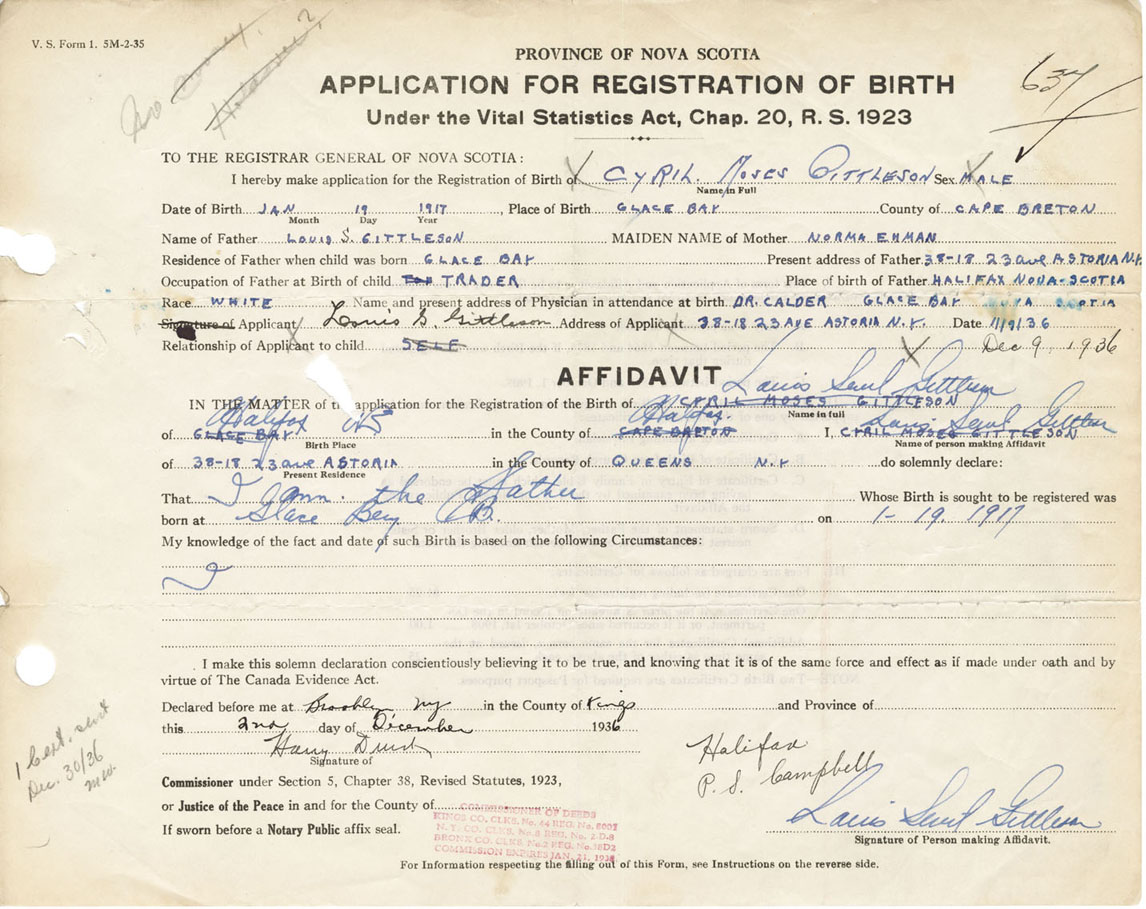 V. S. Form 1. 5M-2-35
PROVINCE OF NOVA SCOTIA
APPLICATION FOR REGISTRATION OF BIRTH
Under the Vital Statistics Act, Chap. 20, R. S. 1923
637
TO THE REGISTRAR GENERAL OF NOVA SCOTIA:
I hereby make application for the Registration of Birth of CYRIL MOSES GITTLESON Sex MALE
Name in Full
Date of Birth JAN 19 1917, Place of Birth GLACE BAY County of CAPE BRETON
Month Day Year
Name of Father LOUIS S. GITTLESON MAIDEN NAME of Mother NORMA EHMAN
Residence of Father when child was born GLACE BAY Present address of Father 38-18 23 ave ASTORIA N.Y.
Occupation of Father at Birth of child TRADER Place of birth of Father HALIFAX NOVA-SCOTIA
Race WHITE Name and present address of Physician in attendance at birth DR. CALDER GLACE BAY NOVA SCOTIA
Signature of Applicant Louis S. Gittleson Address of Applicant 38-18 23 AVE ASTORIA N.Y. Date 11/9/36
Relationship of Applicant to child SELF Dec 9, 1936
AFFIDAVIT
Louis Seul Gittleson
IN THE MATTER of the application for the Registration of the Birth of CYRIL MOSES GITTLESON
Name in full
Halifax NS Halifax. Louis Seul Gittleson
of GLACE BAY in the County of CAPE BRETON I, CYRIL MOSES GITTLESON
Birth Place Name of person making Affidavit
of 38-18 23 ave ASTORIA in the County of QUEENS N.Y. do solemnly declare:
Present Residence
That I am the Father Whose Birth is sought to be registered was
born at Glace Bay CB. on 1-19. 1917
My knowledge of the fact and date of such Birth is based on the following Circumstances:
I
I make this solemn declaration conscientiously believing it to be true, and knowing that it is of the same force and effect as if made under oath and by
virtue of The Canada Evidence Act.
Declared before me at Brooklyn NY in the County of Kings and Province of
this 2nd day of December 1936
Harry
Signature of
Halifax
P. S. Campbell
1 Cert. sent
Dec. 30/36
Commissioner under Section 5, Chapter 38, Revised Statutes, 1923,
or Justice of the Peace in and for the County of
If sworn before a Notary Public affix seal.
COMMISSIONER OF DEEDS
KINGS CO. CLKS. No. 44 REG. No. 6007
N. Y. CO. CLKS. No. 8 REG. No. 2-D-8
BRONX CO. CLKS. No. 2 REG. No. 18D2
COMMISSION EXPIRES JAN. 21, 1938
Louis Seul Gittleson
Signature of Person making Affidavit.
For Information respecting the filling out of this Form, see Instructions on the reverse side.